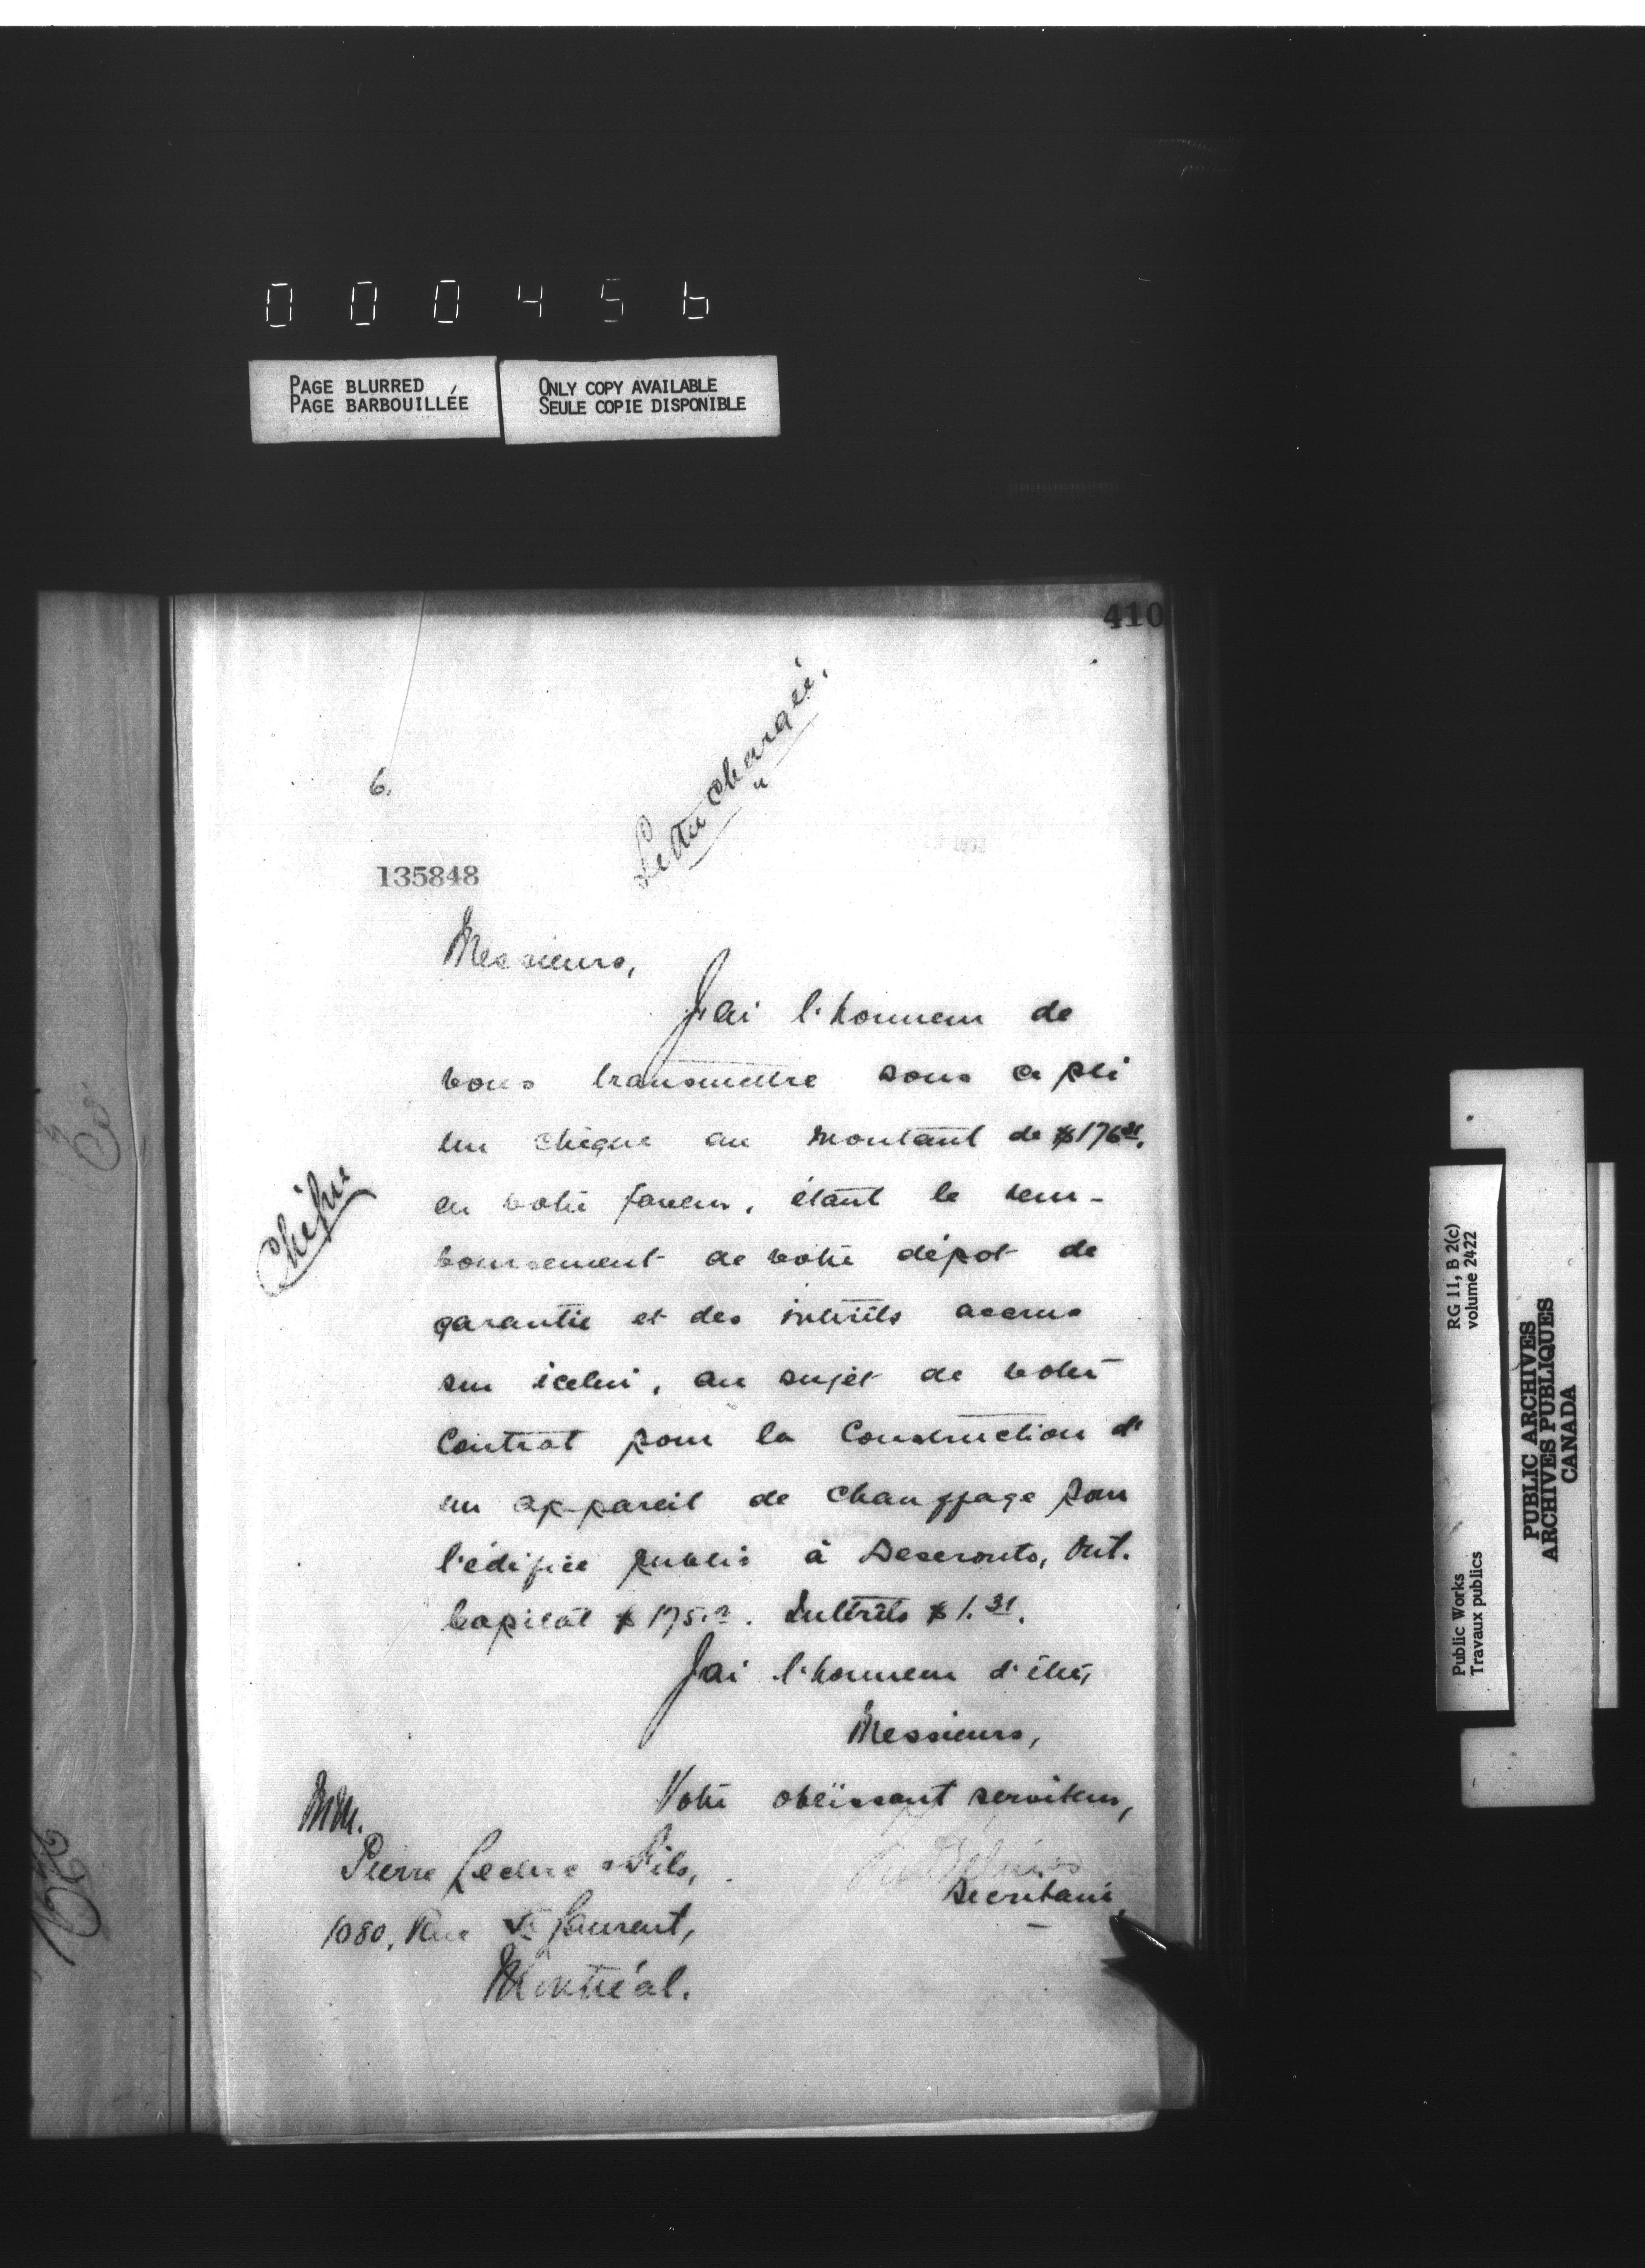 000456
PAGE BLURRED
PAGE BARBOUILLÉE
ONLY COPY AVAILABLE
SEULE COPIE DISPONIBLE
410
Lettre chargée.
6.
135848
Messieurs,
J'ai l'honneur de
vous transmettre sous ce pli
un chèque au montant de $176.31.
en votre faveur, étant le rem-
boursement de votre dépot de
garantie et des intérêts accrus
sur icelui, au sujet de votre
Contrat pour la Construction d'
un appareil de chauffage pour
l'édifice public à Deseronto, Ont.
Capital $175.00. Intérêts $1.31.
J'ai l'honneur d'être,
Messieurs,
Votre obéïssant serviteur,
Secrétaire,
MM.
Pierre Leclerc & Fils,
1080, Rue St Laurent,
Montréal.
RG 11, B 2(c)
volume 2422
Public Works
Travaux publics
PUBLIC ARCHIVES
ARCHIVES PUBLIQUES
CANADA